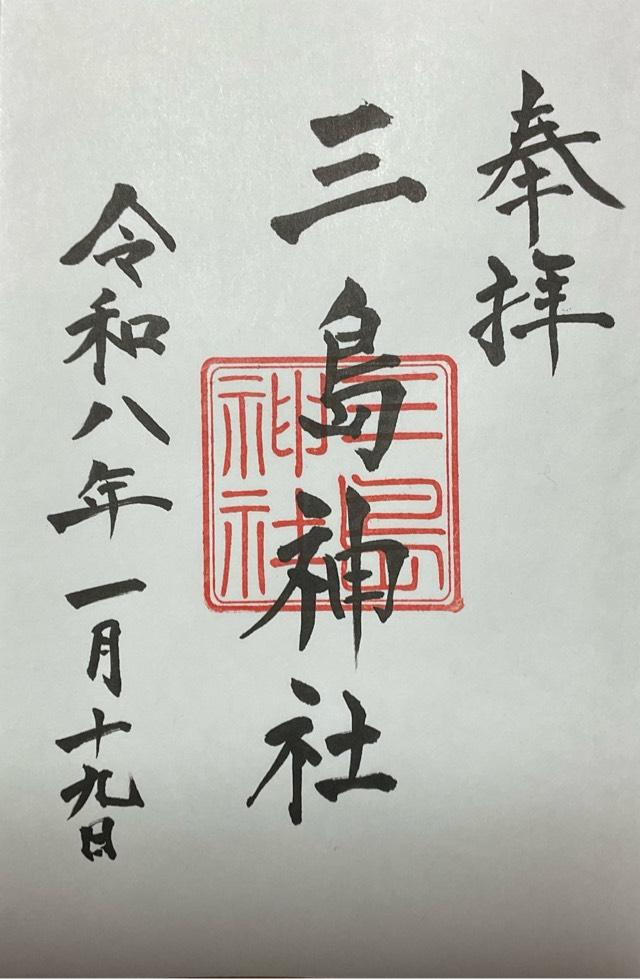 奉拝
三島神社
三島神社
令和八年一月十九日